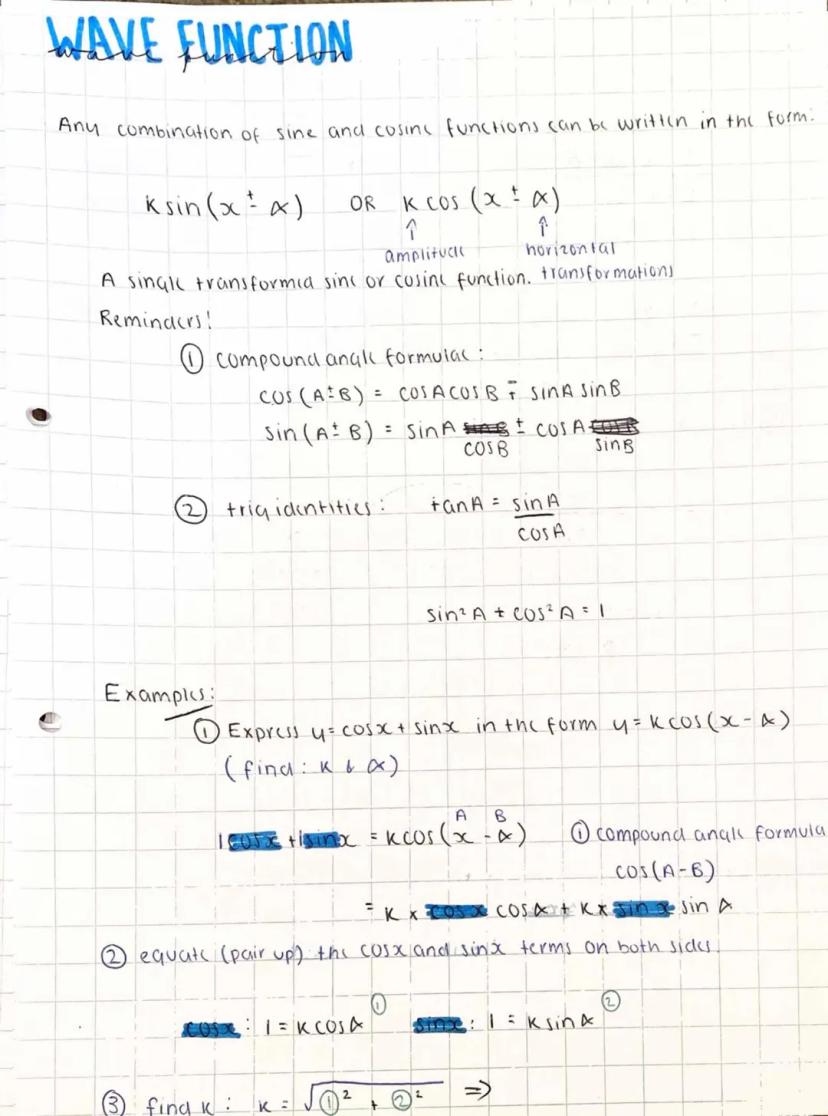 WAVE FUNCTION
wave function
Any combination of sine and cosine functions can be written in the form:
K sin(x ± α) OR K cos (x ± α)
↑ ↑
amplitude horizontal
A single transformed sine or cosine function. transformations
Reminders!
① compound angle formulae:
cos(A±B) = cosAcosB ∓ sinA sinB
sin(A±B) = sinA cosB ± cosA sinB
② trig identities: tanA = sinA
cosA
sin²A + cos²A = 1
Examples:
① Express y=cosx + sinx in the form y = Kcos(x - α)
(find: K & α)
A B
1cosx + 1sinx = Kcos(x - α) ① compound angle formula
cos(A-B)
= K x cosx cosα + K x sinx sin α
② equate (pair up) the cosx and sinx terms on both sides.
cosx: 1 = Kcosα ① sinx: 1 = Ksinα ②
③ find K: K = √①² + ②² ⇒